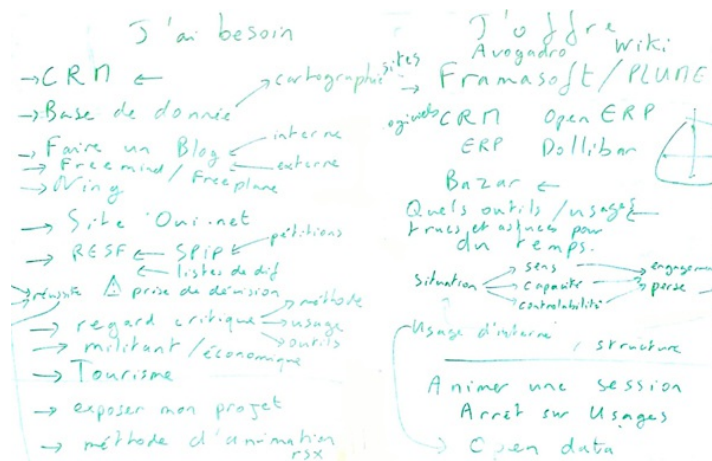 J'ai besoin
→ CRM ←
cartographie
→ Base de donnée
→ Faire un Blog
interne
→ Freemind / Freeplane
externe
→ Ning
→ Site Oui.net
→ RESF ← SPIP ←
pétitions
← listes de dif
réussite ⚠ prise de décision
→ regard critique
méthode
→ usage
outils
→ militant / économique
→ Tourisme
→ exposer mon projet
→ méthode d'animation
rsx
J'offre
Avogadro Wiki
sites
→ Framasoft / PLUME
logiciels CRM Open ERP
ERP Dollibar
Bazar ←
Quels outils / usages ←
trucs et astuces pour
du temps.
situation
sens
capacité
controlabilité
engagemen
perse
Usage d'interne
/ structure
Animer une session
Arrêt sur Usages
Open data